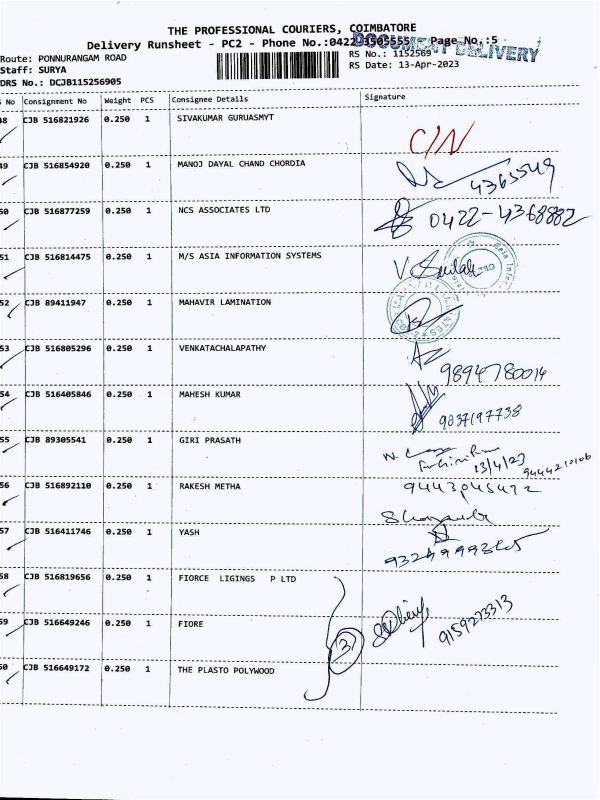 THE PROFESSIONAL COURIERS, COIMBATORE
Delivery Runsheet - PC2 - Phone No.:0422-3505555 Page No.:5
DOCUMENT DELIVERY
Route: PONNURANGAM ROAD
RS No.: 1152569
Staff: SURYA
RS Date: 13-Apr-2023
DRS No.: DCJB115256905
No Consignment No Weight PCS Consignee Details Signature
48 CJB 516821926 0.250 1 SIVAKUMAR GURUASMYT
C/N
49 CJB 516854920 0.250 1 MANOJ DAYAL CHAND CHORDIA
4365549
50 CJB 516877259 0.250 1 NCS ASSOCIATES LTD
0422-4368882
51 CJB 516814475 0.250 1 M/S ASIA INFORMATION SYSTEMS
52 CJB 89411947 0.250 1 MAHAVIR LAMINATION
53 CJB 516805296 0.250 1 VENKATACHALAPATHY
9894780014
54 CJB 516405846 0.250 1 MAHESH KUMAR
9837197738
55 CJB 89305541 0.250 1 GIRI PRASATH
13/4/23
9444210106
56 CJB 516892110 0.250 1 RAKESH METHA
9443045472
57 CJB 516411746 0.250 1 YASH
58 CJB 516819656 0.250 1 FIORCE LIGINGS P LTD
59 CJB 516649246 0.250 1 FIORE
3
9159273313
60 CJB 516649172 0.250 1 THE PLASTO POLYWOOD